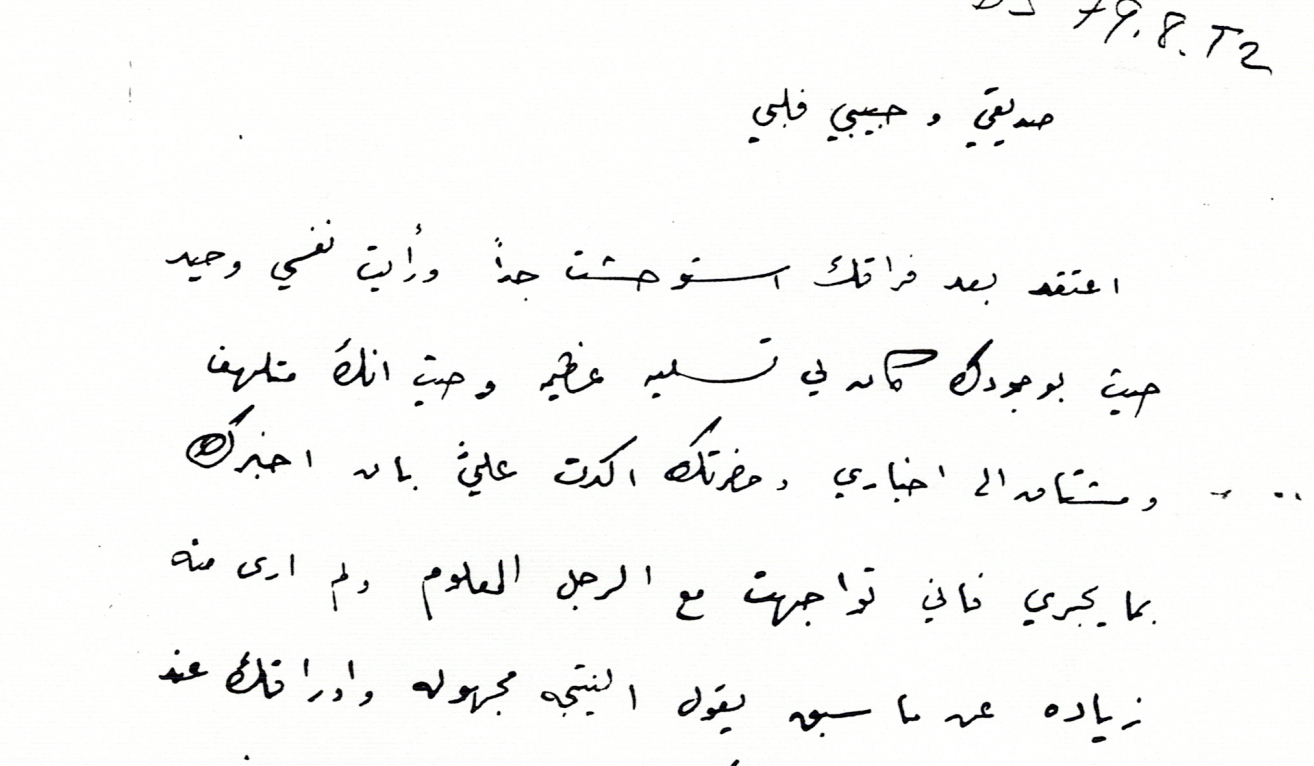 79.8.T2
صديقي و حبيبي قلبي
اعتقد بعد فراقك استوحشت جداً ورأيت نفسي وحيد
حيث بوجودك كان لي تسليه عظيمه وحيث انكَ متلهف
ومشتاق الى اخباري وحضرتك اكدت عليَّ بان اخبرك
بما يجري فاني تواجهت مع الرجل المعلوم ولم ارى منه
زياده عن ما سبق يقول النتيجه مجهوله واوراقك عند